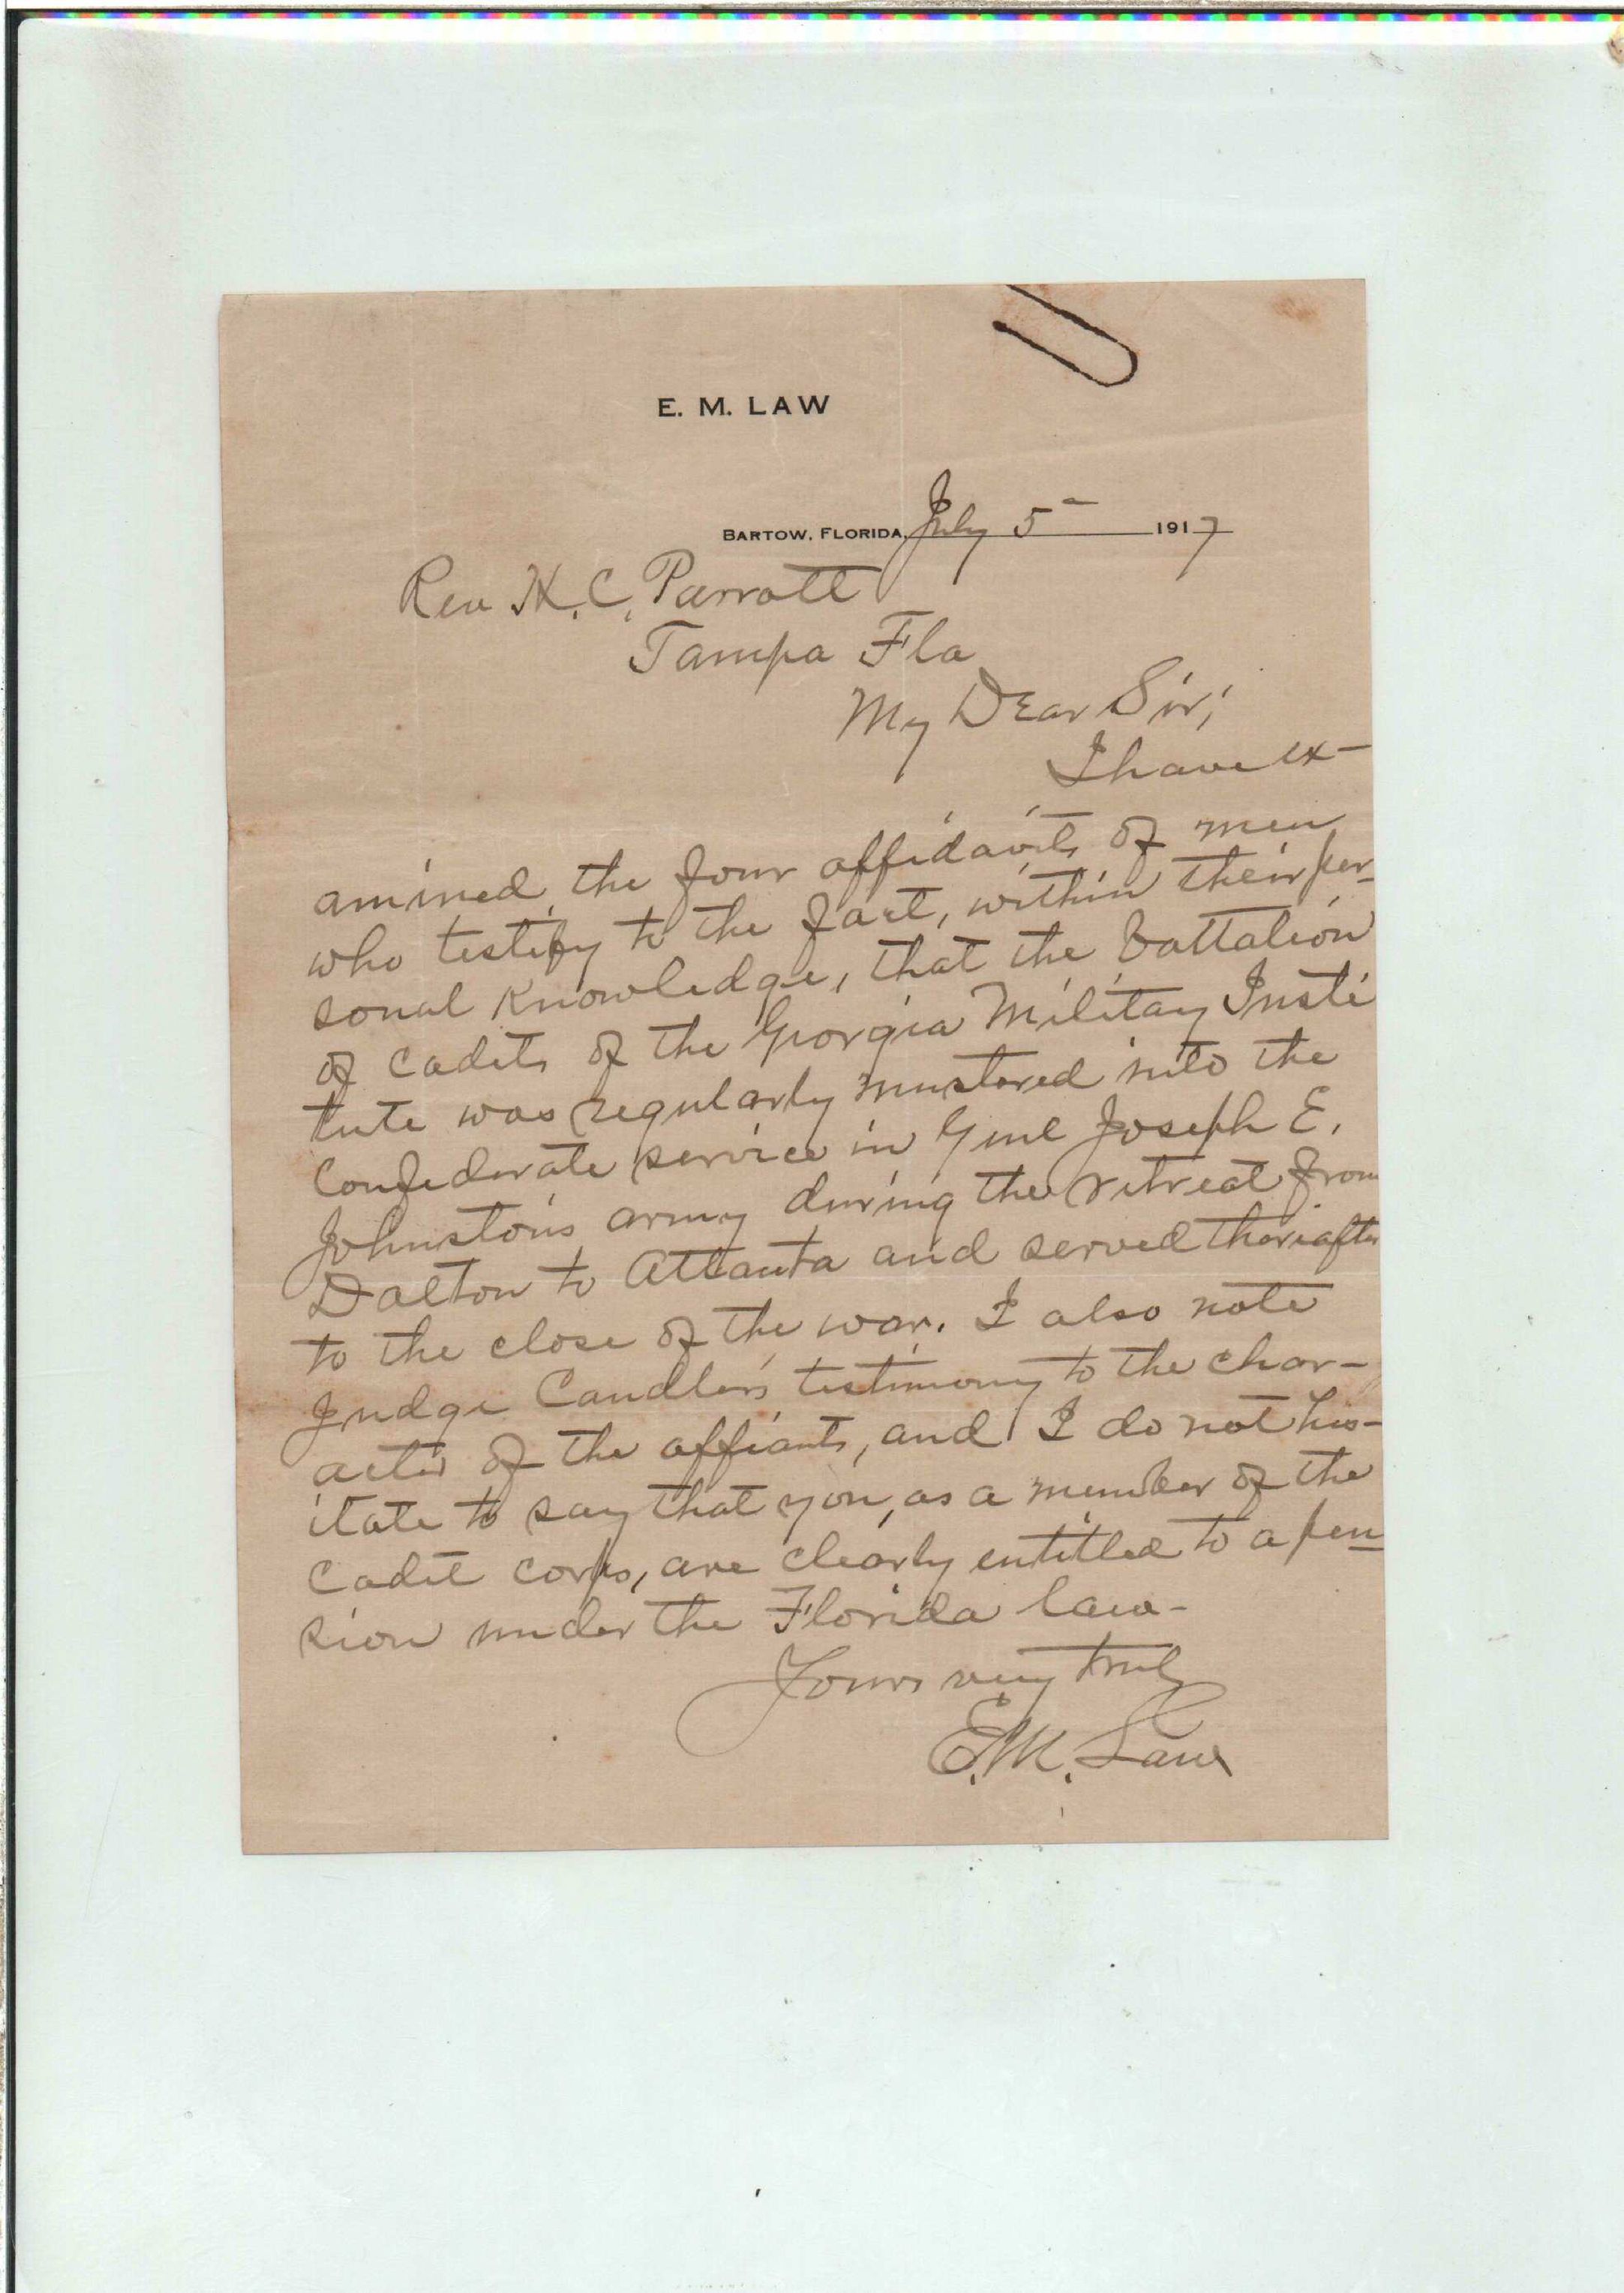 E. M. LAW
BARTOW, FLORIDA, July 5- 1917
Rev H. C. Parrott
Tampa Fla
My Dear Sir;
I have ex-
amined the four affidavits of men
who testify to the fact, within their per-
sonal knowledge, that the battalion
of cadets of the Georgia Military Insti
tute was regularly mustered into the
Confederate service in Genl Joseph E.
Johnston's army during the retreat from
Dalton to Atlanta and served thereafter
to the close of the war. I also note
Judge Candler's testimony to the char-
acter of the affiants, and I do not hes-
itate to say that you, as a member of the
Cadet corps, are clearly entitled to a pen-
sion under the Florida law-
Yours very truly
E. M. Law